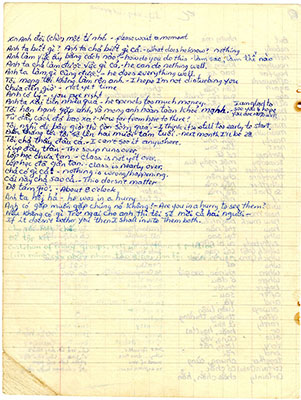 xin Anh đợi (chờ) một tí nhé - please wait a moment
Anh ta biết gì? Anh ta chả biết gì cả. - what does he know? nothing
Anh làm việc ấy bằng cách nào? - how do you do this - làm sao, làm thế nào
Anh ta chả làm được việc gì cả, - he can do nothing well.
Anh ta làm gì cũng được! - he does everything well.
Tôi mong tôi không làm rộn anh. - I hope I'm not disturbing you
Chưa đến giờ - not yet time
Anh có lý - you are right
Anh ta xài tiền nhiều quá - he spends far much money.
Tôi hân hạnh gặp anh, và mong anh hoàn toàn khoẻ mạnh. - I am glad to see you & hope you are well
Từ đây cách đó bao xa? - How far from here to there?
Tôi nghĩ đi bây giờ thì còn sớm quá. - I think it is still too early to start.
tháng tới tôi sẽ lên hai mươi tám tuổi. - next month I'll be 28
Tôi chả thấy đâu cả. - I can't see it anywhere.
Xúp đầy tràn - The soup runs over.
Lớp học chưa tan - class is not yet over.
Lớp học đã gần tan. - class is nearly over.
chả có gì cả! - nothing is wrong, happening.
Cái này chả sao cả. - This doesn't matter
Độ tám giờ. - About 8 o'clock.
Anh ta vội vã - he was in a hurry.
Anh có gấp muốn gặp chúng nó không? - Are you in a hurry to see them?
Nếu không có gì trở ngại cho anh thì tôi sẽ mời cả hai người -
If it doesn't bother you then I shall invite them both.